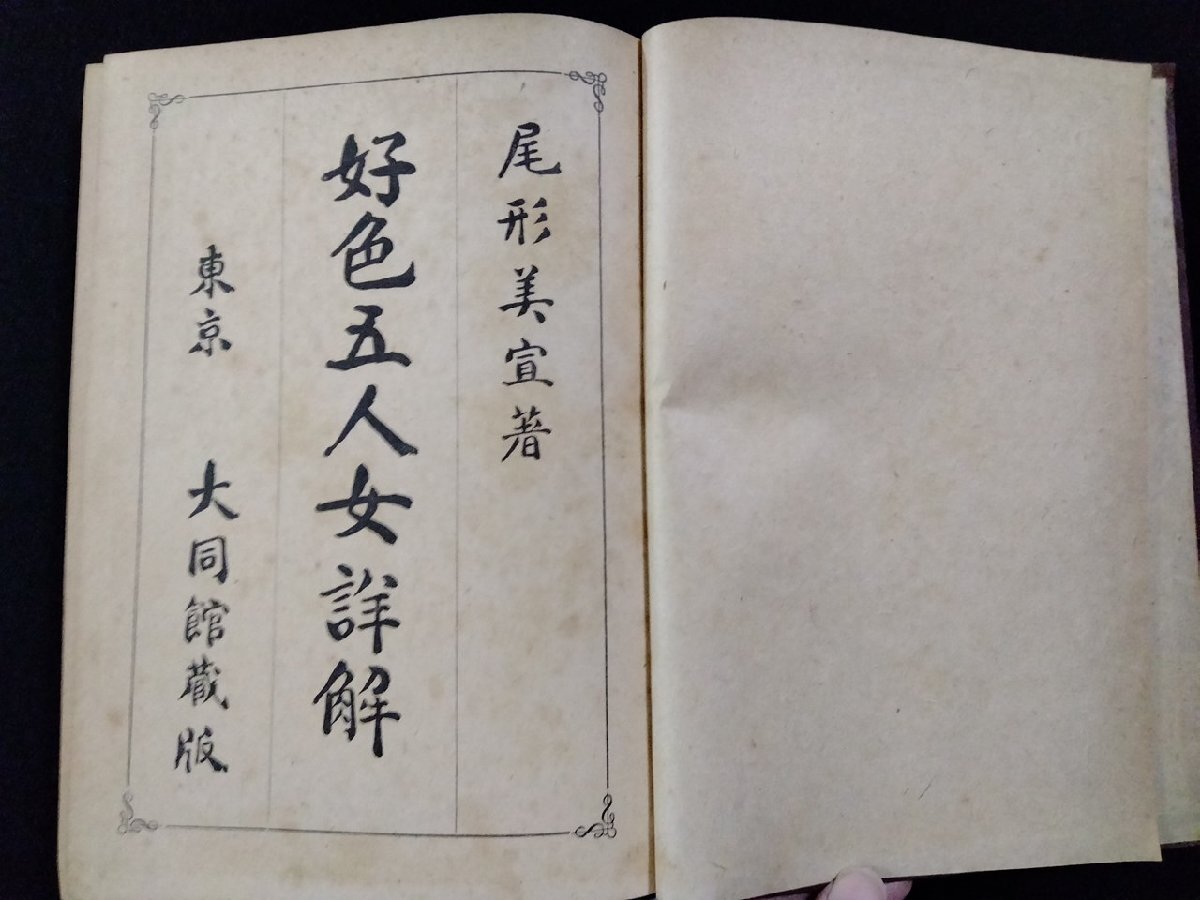 尾形美宣著
好色五人女詳解
東京 大同館蔵版